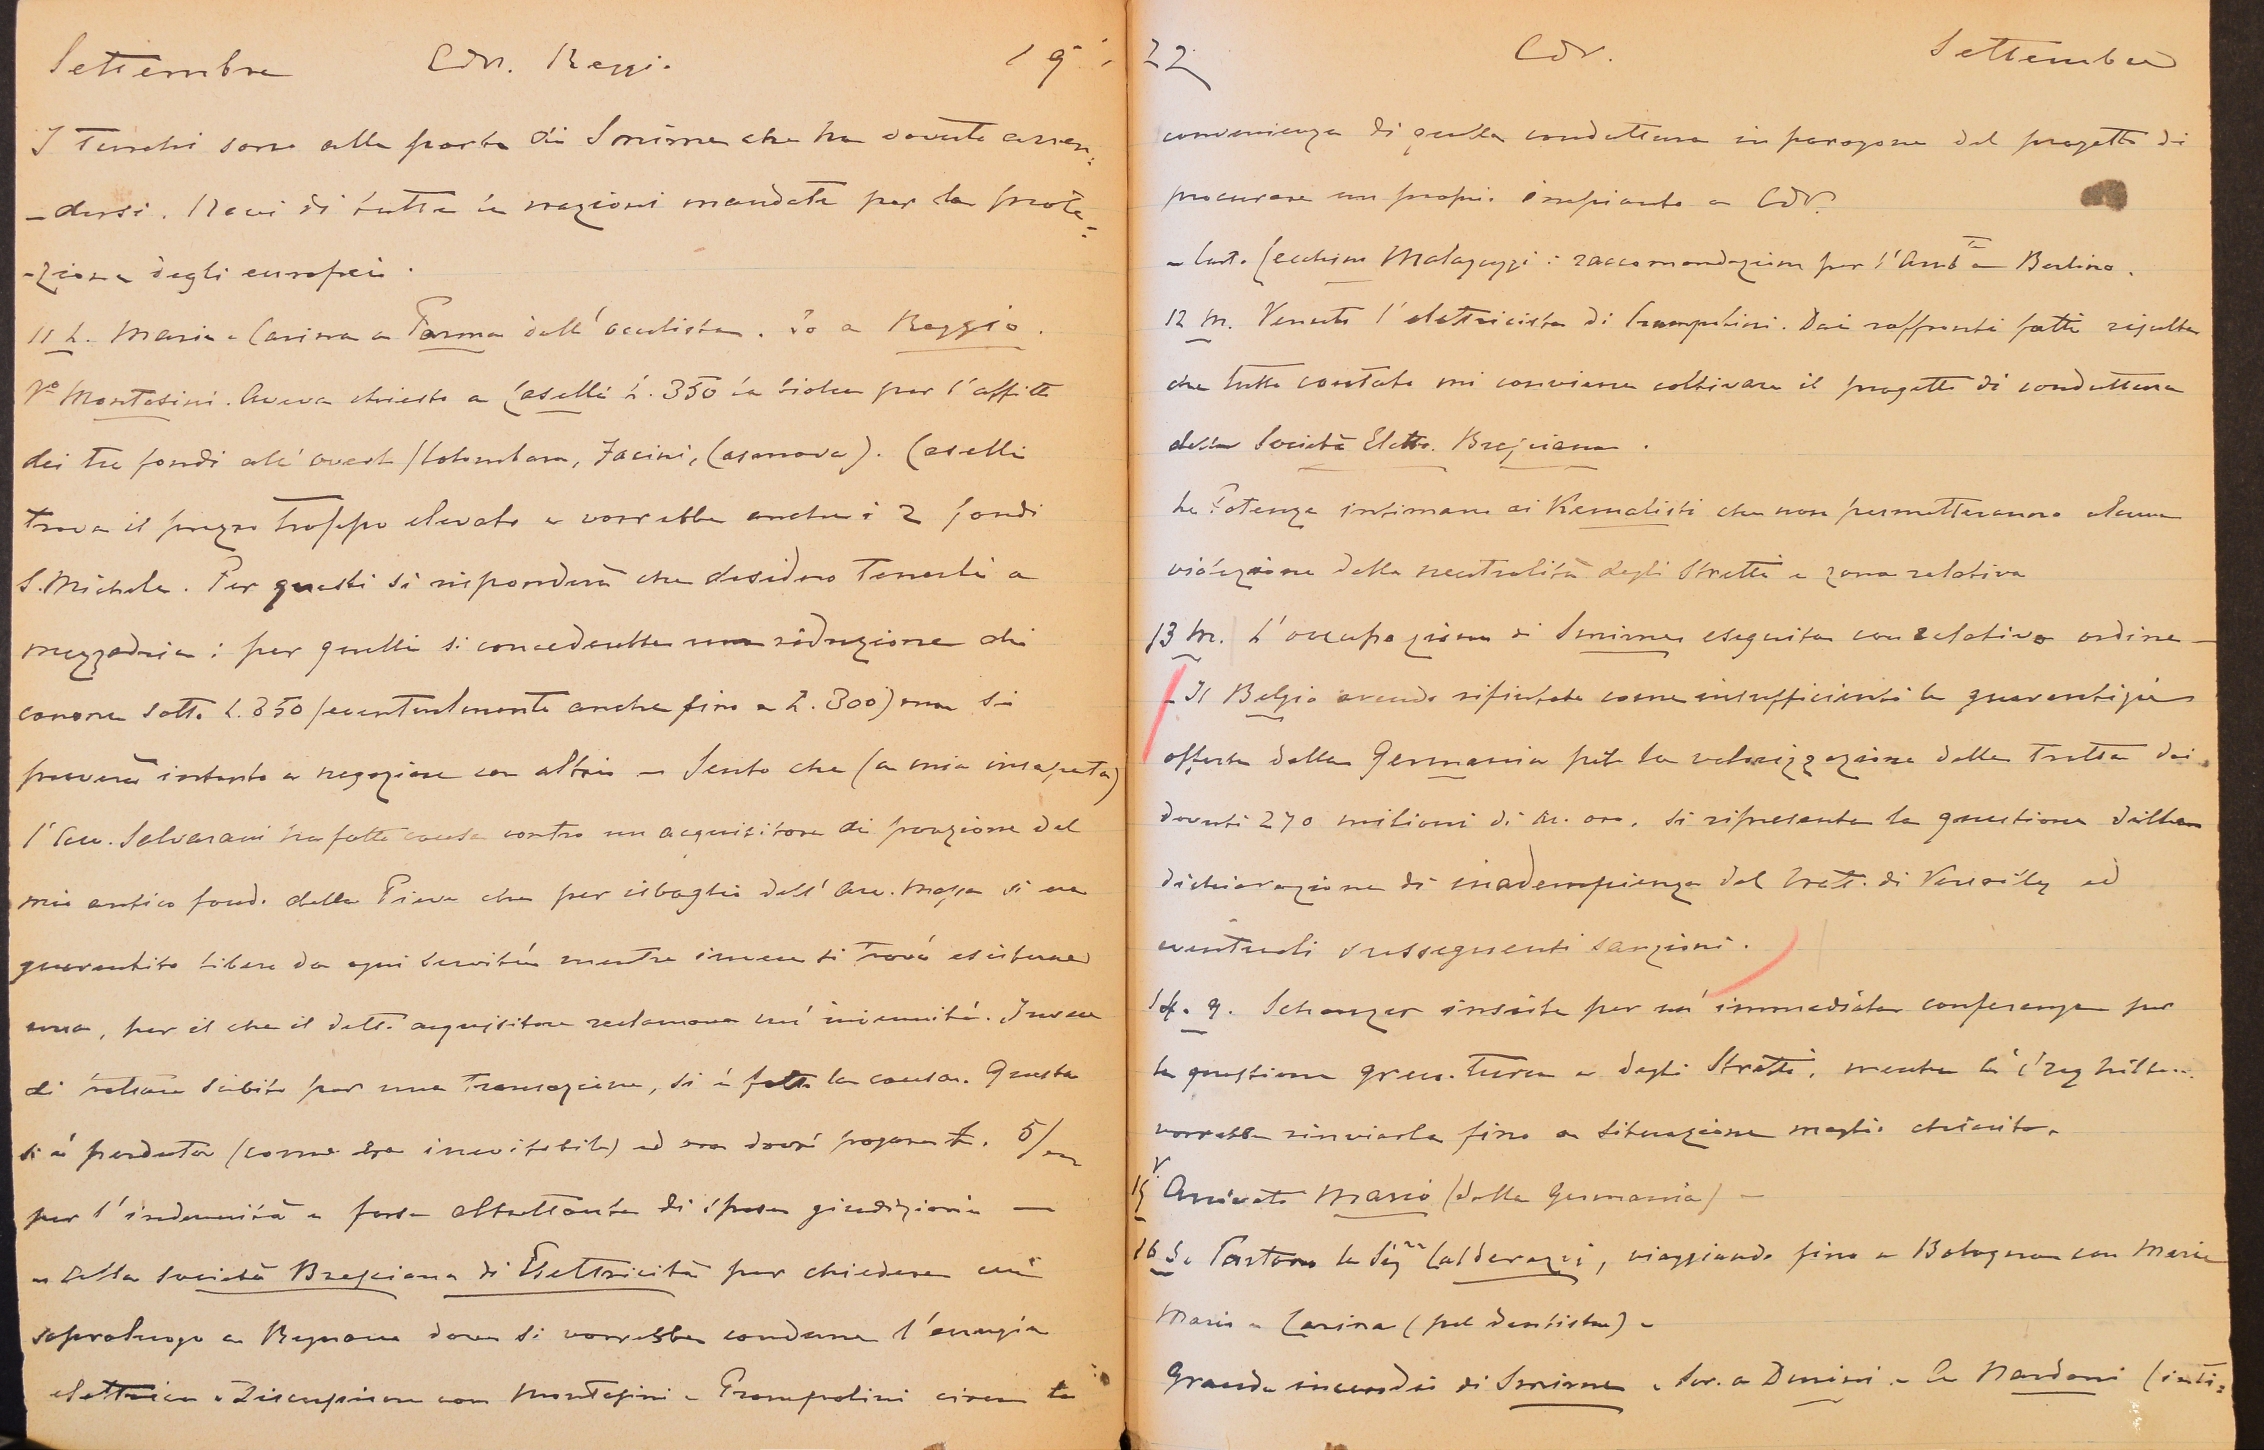 Settembre Cdr. Reggi. 19
I turchi sono alle porte di Smirne che ha dovuto arren:
-dersi. Navi di tutte le nazioni mandate per la prote=
-zione degli europei.
11 L. Maria e Carina a Parma dall'oculista. Io a Reggio.
Vo Montesini. Aveva chiesto a Caselli L. 350 la biolca per l'affitto
dei tre fondi all'ovest (Colombara, Jacini, Casanova). Caselli
trova il prezzo troppo elevato e vorrebbe anche i 2 fondi
S. Michele. Per questi si risponderà che desidero tenerli a
mezzadria: per quelli si concederebbe una riduzione di
canone sotto L. 350 (eventualmente anche fino a L. 300) ma si
proverà intanto a negoziare con altri – Sento che (a mia insaputa)
l'avv. Salvarani ha fatto causa contro un acquisitore di porzione del
mio antico fondo della Pieve che per isbaglio dell'avv. si era
guarentito libero da ogni servitù mentre invece si trovò esisterne
una, per il che il detto acquisitore reclamava un'indennità. Invece
di subito per una transazione, si è fatta la causa. Questa
si è perduta (come era inevitabile) ed ora dovrò pagare L. 5/m
per l'indennità e forse altrettanto di spese giudiziarie —
– Alla Società Bresciana di Elettricità per chiedere un
sopraluogo a dove si vorrebbe condurre l'energia
elettrica – Discussione con Montesini e Prampolini circa la
22 Cdr. Settembre
convenienza di quella conduttura in paragone del progetto di
procurare un proprio impianto a Cdr.
– Malaguzzi: raccomandazione per l'Amb.ta a Berlino.
12 M. Venuto l'elettricista di Prampolini. Dai raffronti fatti risulta
che tutto contato mi conviene coltivare il progetto di conduttura
della Società Elettr. Bresciana.
Le Potenze intimano ai Kemalisti che non permetteranno alcuna
violazione della neutralità degli Stretti e zona relativa
13 M. L'occupazione di Smirne eseguita con relativo ordine —
– Il Belgio avendo rifiutato come insufficienti le guarentigie
offerte dalla Germania per la valorizzazione delle tratte dei
dovuti 270 milioni di M. oro, si ripresenta la questione della
dichiarazione di inadempienza del tratt. di Versailles ed
eventuali susseguenti sanzioni.
14. G. Schanzer insiste per un'immediata conferenza per
la questione greco-turca e degli Stretti, mentre
vorrebbe rinviarla fino a situazione meglio chiarita.
15 V. Arrivato Mario (dalla Germania) –
16 S. Partono la Sig.ra Calderazzi, viaggiando fino a Bologna con Maria
Mario e Carina (pel dentista) –
Grande incendio di Smirne – Scr. a Dunini – Da Nardoni (inti=